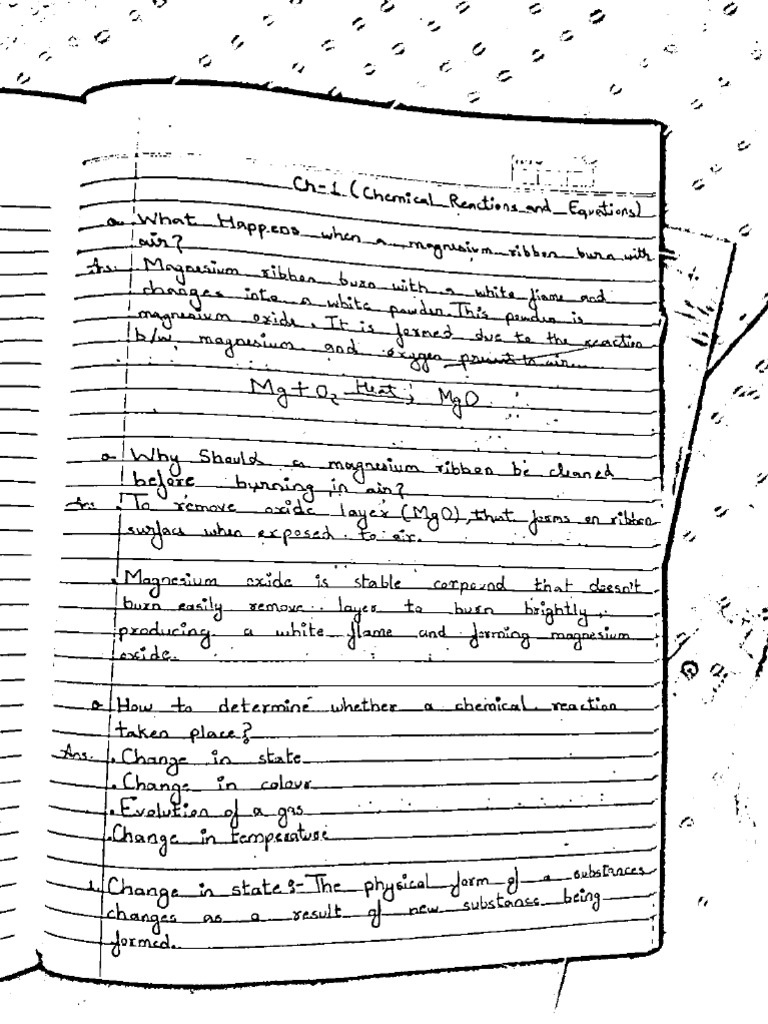 Ch-1 (Chemical Reactions and Equations)
Q What Happens when a magnesium ribbon burn with
air?
Ans. Magnesium ribbon burn with a white flame and
changes into a white powder. This powder is
magnesium oxide. It is formed due to the reaction
b/w magnesium and oxygen present in air.
Mg + O₂ Heat→ MgO
Q Why Should a magnesium ribbon be cleaned
before burning in air?
Ans. • To remove oxide layer (MgO), that forms on ribbon
surface when exposed to air.
• Magnesium oxide is stable compound that doesn't
burn easily remove layer to burn brightly,
producing a white flame and forming magnesium
oxide.
Q How to determine whether a chemical reaction
taken place?
Ans. • Change in state
• Change in colour
• Evolution of a gas
• Change in temperature
1. Change in state :- The physical form of a substances
changes as a result of new substance being
formed.